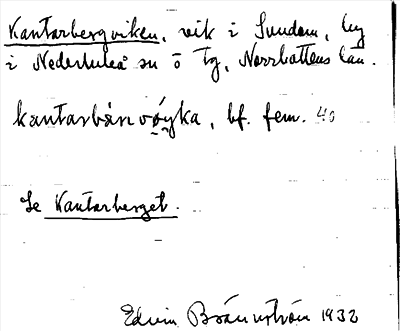 Kantarbergviken, vik i Sundom, by
i Nederluleå sn o Tg, Norrbottens län.
kantarbärrvóyka, bf. fem. 40
Se Kantarberget.
Edvin Brännström 1932